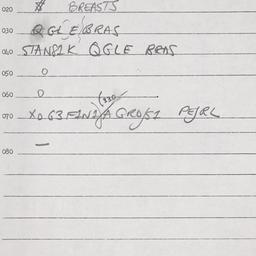 020 # BREASTS
030 QGLE BRAS
040 STAN81K QGLE BRAS
050 0
060 0
(330
070 X0G3F1N1/A GRO/51 PE/RL
080 —